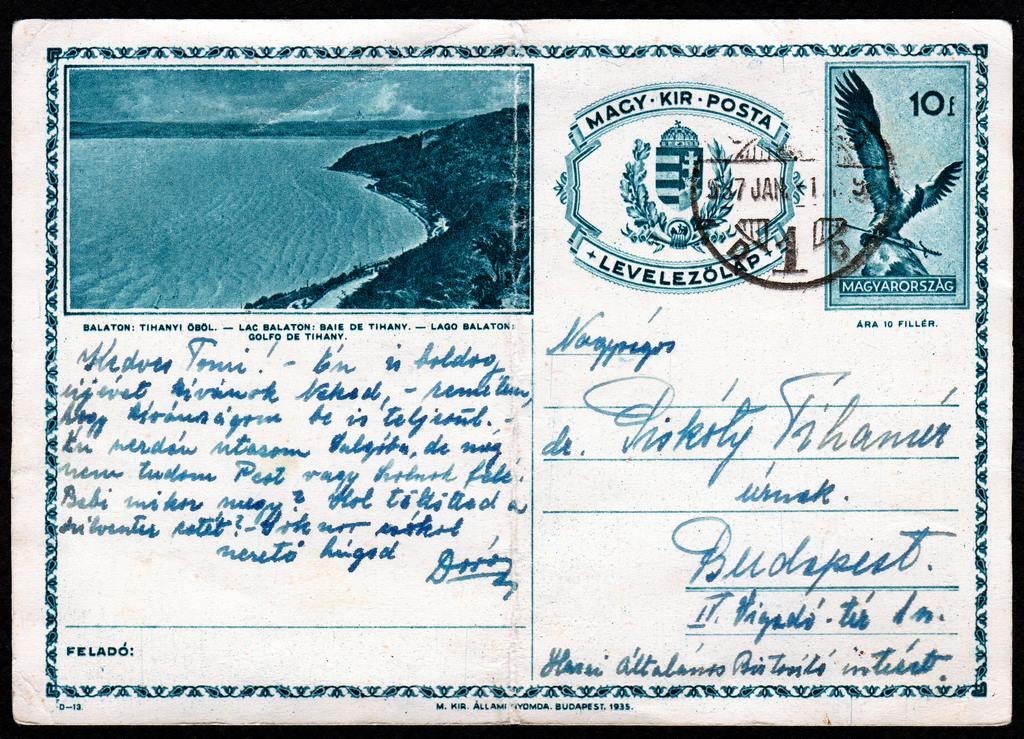 MAGY · KIR · POSTA
LEVELEZŐLAP
10f
MAGYARORSZÁG
937 JAN. 1
1
ÁRA 10 FILLÉR.
BALATON: TIHANYI ÖBÖL. — LAC BALATON: BAIE DE TIHANY. — LAGO BALATON:
GOLFO DE TIHANY.
Kedves Tomi! - Én is boldog
újévet kívánok Neked, - remélem,
hogy kívánságom be is teljesül. -
Én szerdán utazom, de még
nem tudom Pest vagy Szolnok felé.
Babi mikor megy? Hol töltötted a
szilveszter estét? - Sokszor csókol
szerető húgod
Nagyságos
dr. Piskóty Tihamér
úrnak.
Budapest.
IV. Vigadó-tér 1 sz.
Általános Biztosító intézet.
FELADÓ:
D—13.
M. KIR. ÁLLAMI NYOMDA. BUDAPEST. 1935.